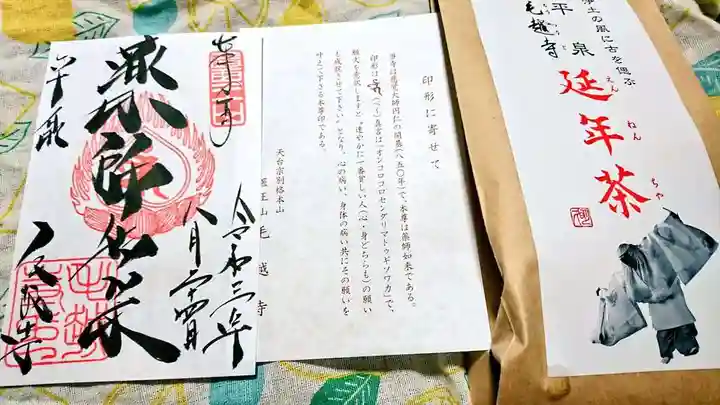 奉拝
薬師如来
毛越寺
令和三年
八月二十四日
印形に寄せて
当寺は慈覚大師円仁の開基(八五〇年)で、本尊は薬師如来である。
印形は(べい)真言は「オンコロコロセンダリマトゥギソワカ」で、
願文を意訳しますと"速やかに一番貧しい人(心・身どちらも)の願い
も成就させて下さい"となり、心の病い、身体の病い共にその願いを
叶えて下さる本尊印である。
天台宗別格本山
医王山 毛越寺
浄土の風に古を偲ぶ
平泉
毛越寺
延年茶
えん
ねん
ちゃ